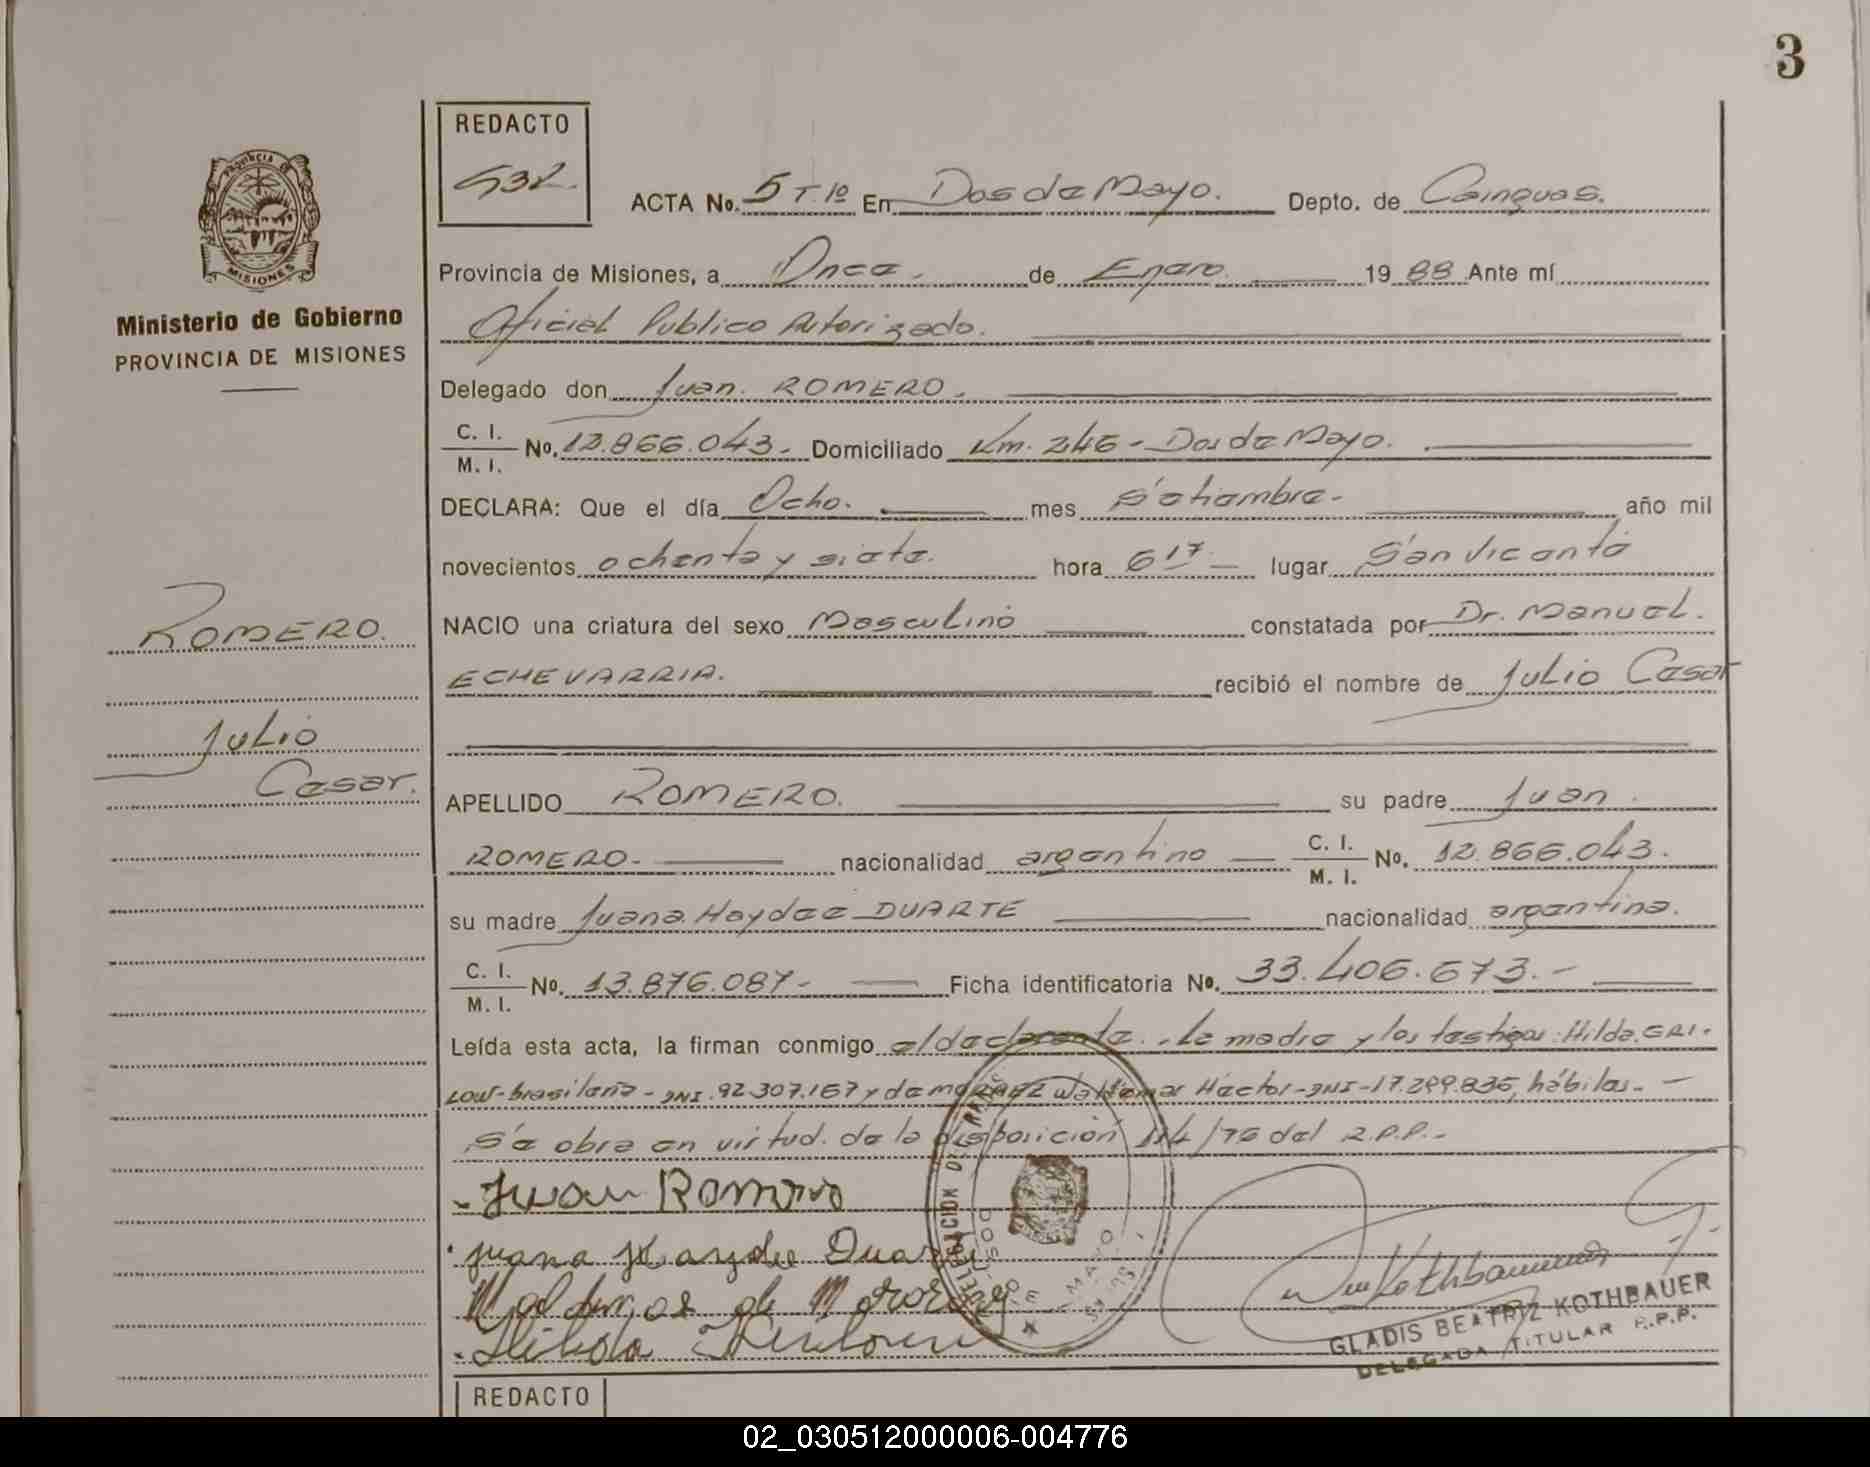 3
REDACTO
532.
ACTA No. 5 Tº 1º En Dos de Mayo. Depto. de Cainguas.
PROVINCIA DE
MISIONES
Ministerio de Gobierno
PROVINCIA DE MISIONES
Provincia de Misiones, a Once. de Enero. 1988 Ante mí
Oficial Publico Autorizado.
Delegado don Juan. ROMERO.
C. I.
M. I. No. 12.866.043.- Domiciliado Km. 246 - Dos de Mayo.
DECLARA: Que el día Ocho. mes Setiembre.- año mil
novecientos ochenta y siete. hora 6 17 - lugar San Vicente
ROMERO.
NACIO una criatura del sexo Masculino constatada por Dr. Manuel.
ECHEVARRIA. recibió el nombre de Julio Cesar
Julio
Cesar.
APELLIDO ROMERO. su padre Juan.
ROMERO.- nacionalidad argentino C. I.
M. I. No. 12.866.043.
su madre Juana Haydee DUARTE nacionalidad argentina.
C. I.
M. I. No. 13.876.087.- Ficha identificatoria No. 33.406.673.-
Leída esta acta, la firman conmigo el declarante. La madre y los testigos: Hilda. GRI-
LOW-brasileña - DNI. 92.307.167 y de Waldemar Hector - DNI - 17.299.835, hábiles.-
Se obra en virtud. de la disposicion 114/76 del R.P.P.-
- Juan Romero
Juana Haydee Duarte
Waldemar de
Hilda
DELEGACION
DOS DE MAYO
GLADIS BEATRIZ KOTHBAUER
DELEGADA TITULAR R.P.P.
REDACTO
02_030512000006-004776